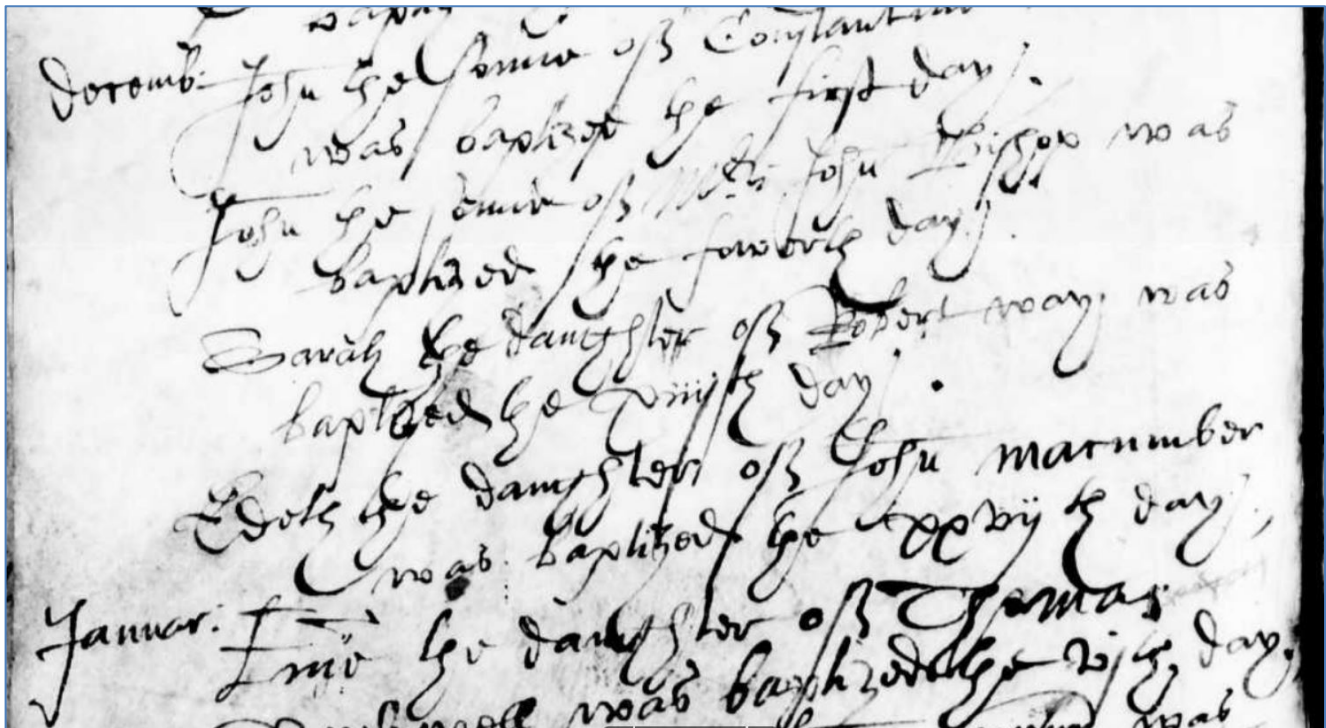 Decemb: John the sonne of Constantine
was baptized the first day.
John the sonne of Mr. John Bishop was
baptized the fowerth day.
Sarah the daughter of Robert way was
baptized the xviijth day.
Edeth the daughter of John macumber
was baptized the xxvijth day.
Januar: the daughter of Thomas
was baptized the vjth day.
was